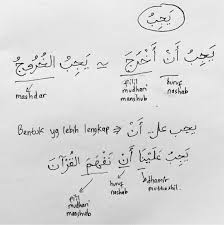 يَجِبُ
يَجِبُ أَنْ أَخْرُجَ ~ يَجِبُ الخُرُوجُ
huruf nashab
fi'il mudhari manshub
mashdar
Bentuk yg lebih lengkap ⇒ يجب على أن
يَجِبُ عَلَيْنَا أَنْ نَفْهَمَ القُرْآنَ
dhamir muttashil
huruf nashab
fi'il mudhari manshub